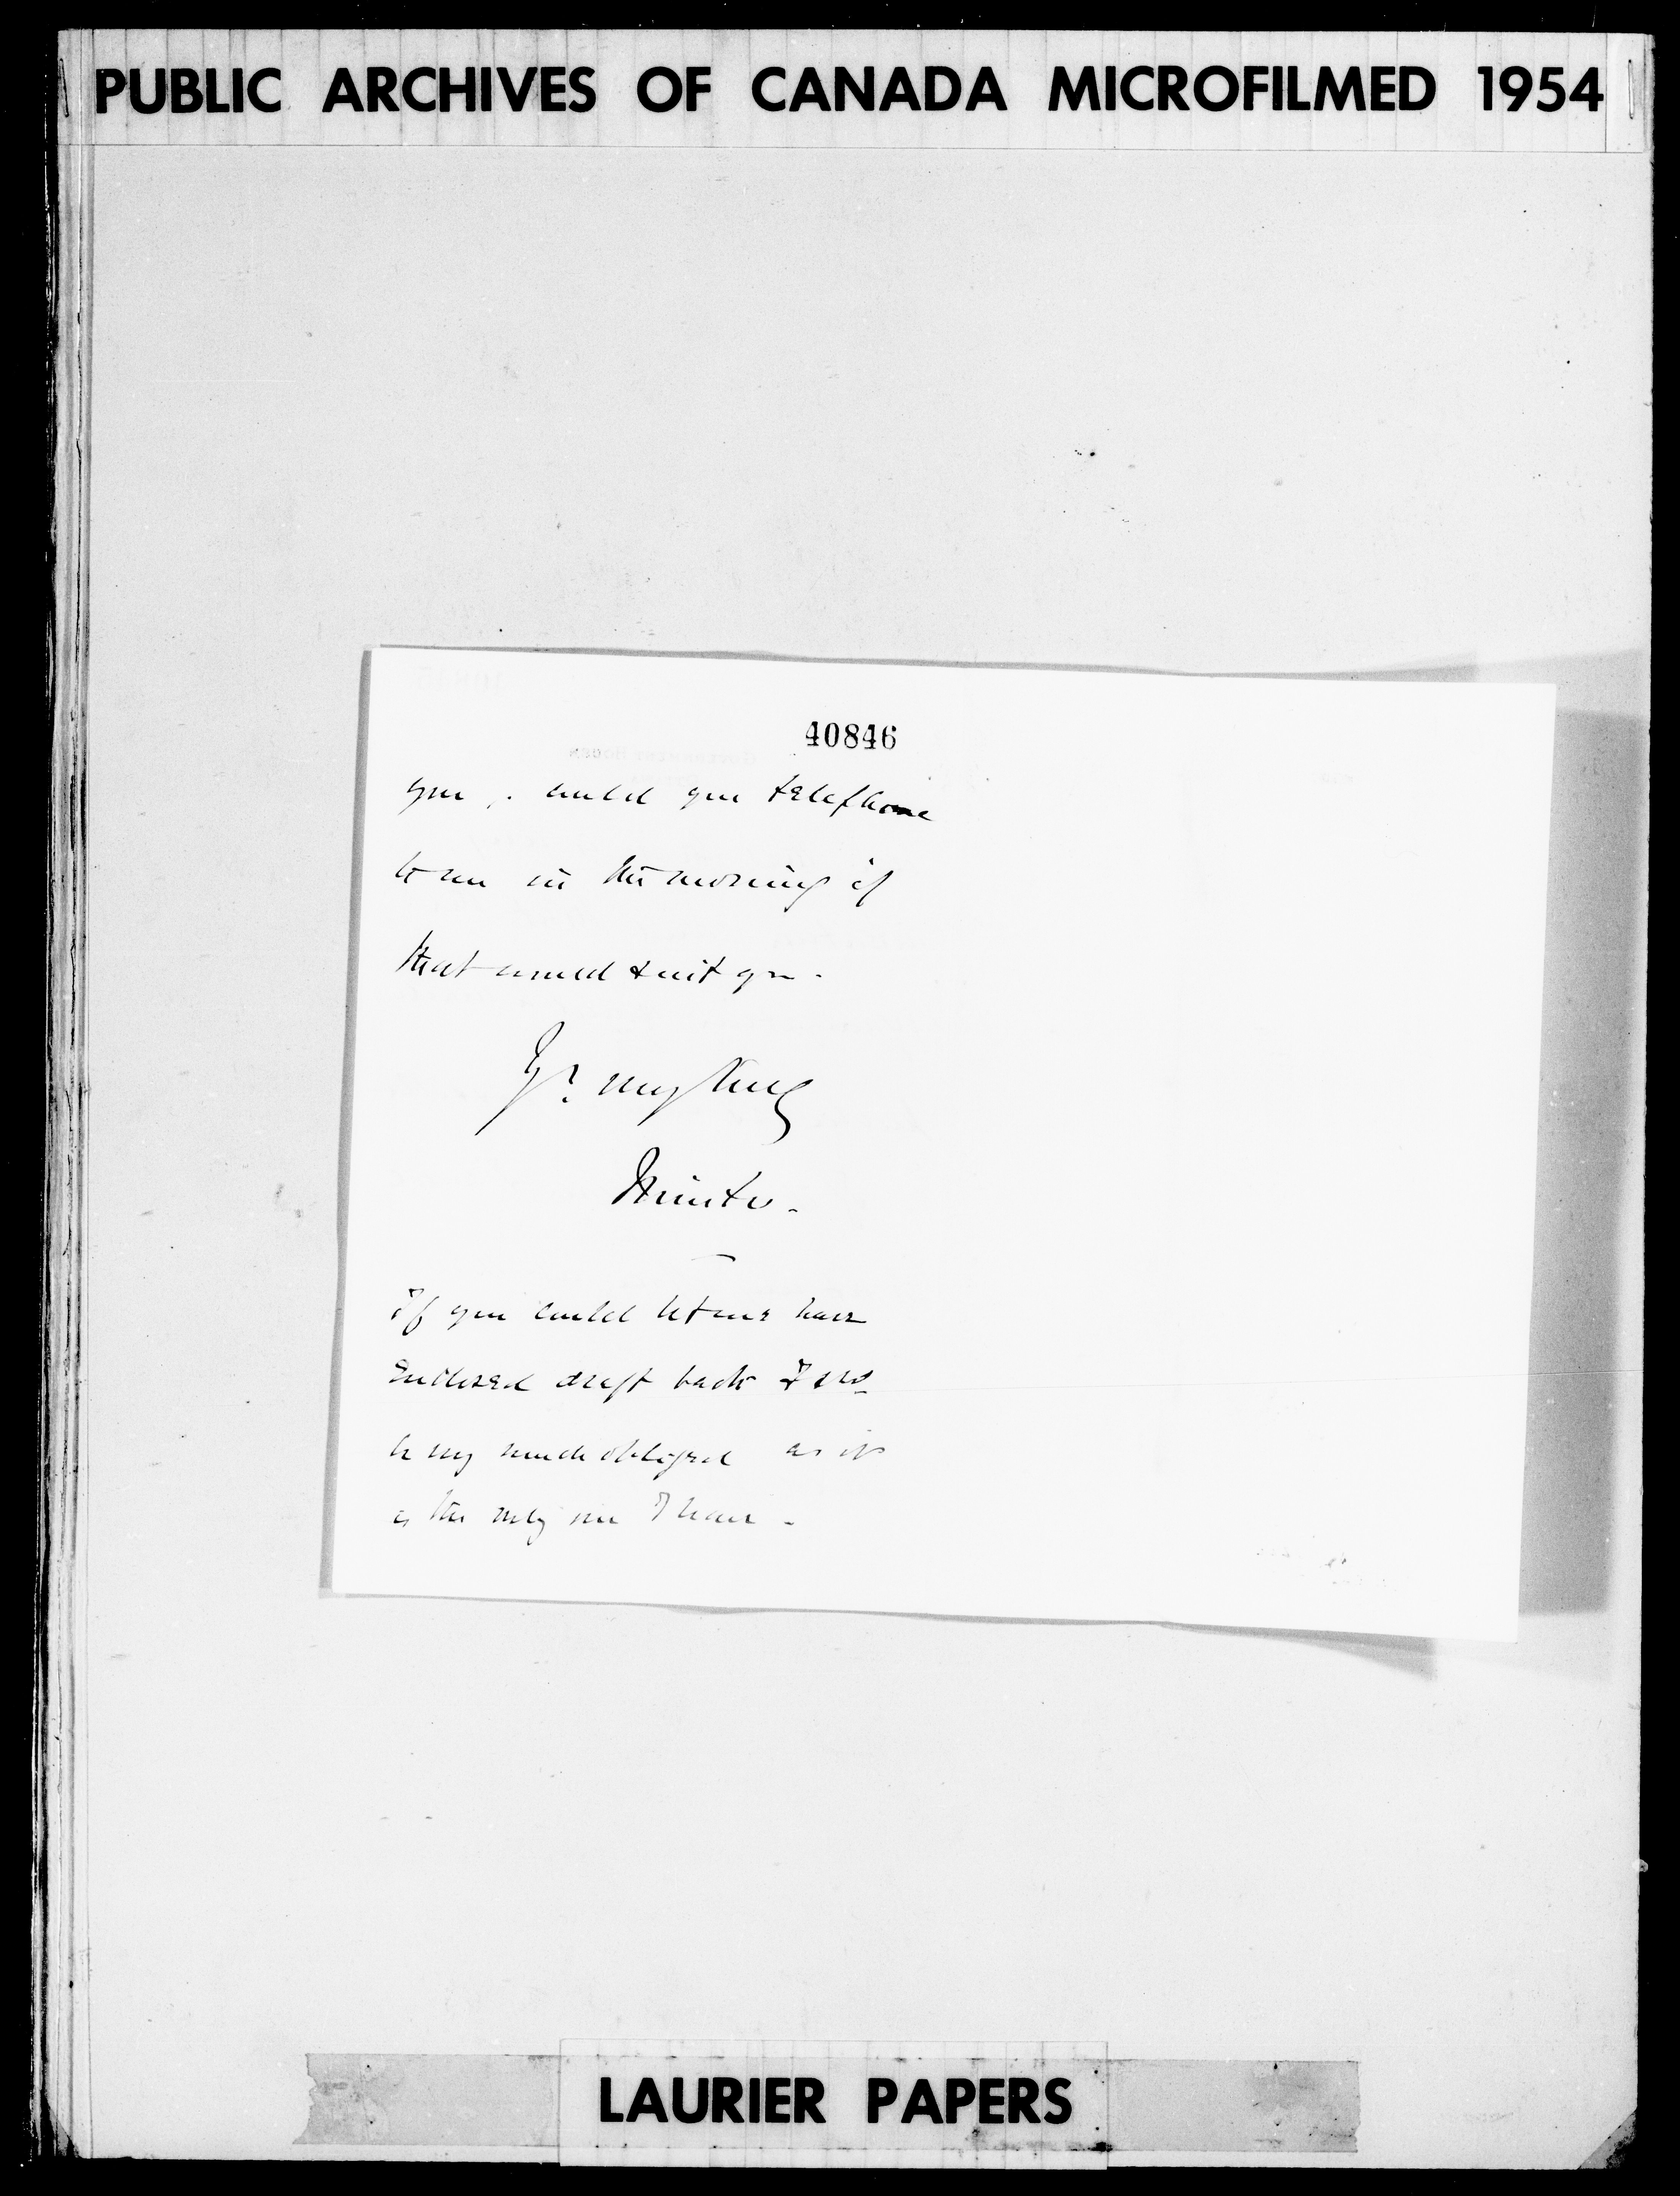 PUBLIC ARCHIVES OF CANADA MICROFILMED 1954
40846
you, could you telephone
to me in the morning if
that would suit you.
Yrs very truly
Minto.
If you could let me have
Enclosed draft back I shd
be very much obliged as it
is the only one I have.
LAURIER PAPERS